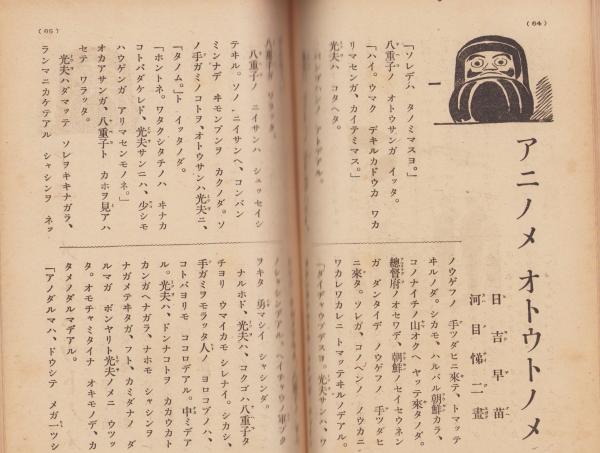 (64)
アニノメ オトウトノメ
日吉早苗
河目悌二畫
一
「ソレデハ タノミマスヨ。」
八重子ノ オトウサンガ イッタ。
「ハイ。ウマク デキルカドウカ ワカ
リマセンガ、カイテミマス。」
光夫ハ コタヘタ。
ノウゲフノ 手ツダヒニ來テ、トマッテ
ヰルノダ。シカモ、ハルバル朝鮮カラ、
コノナイチノ山オクヘ ヤッテ來タノダ。
總督府ノオセワデ、朝鮮ノセイセウネン
ガ ダンタイデ ノウゲフノ 手ツダヒ
ニ來タ。ソレガ、コノヘンノ ノウカニ
ワカレワカレニ トマッテヰルノデアル。
「ダイヂャウブデスヨ。光夫サンハ、ワ
(65)
八重子ノ ニイサンハ シュッセイシ
テヰル。ソノ・ニイサンヘ、コンバン
ミンナデ ヰモンブンヲ カクノダ。ソ
ノ手ガミノコトヲ、オトウサンハ光夫ニ、
「タノム。」ト イッタノダ。
「ホントネ。ワタクシタチノハ キナカ
コトバダケレド、光夫サンニハ、少シモ
ハウゲンガ アリマセンモノネ。」
オカアサンガ、八重子ト カホヲ見アハ
セテ ワラッタ。
光夫ハダマッテ ソレヲキキナガラ、
ランマニカケテアル シャシンヲ ネッ
ヲキタ 勇マシイ シャシンダ。
ナルホド、光夫ハ、コクゴハ八重子タ
チヨリ ウマイカモ シレナイ。シカシ、
手ガミヲモラッタ人ノ ヨロコブノハ、
コトバヨリモ ココロデアル。申ミデア
ル。光夫ハ、ドンナコトヲ カカウカト
カンガヘナガラ、ナホモ シャシンヲ
ナガメテヰタガ、フト、カミダナノ ダ
ルマガ ボンヤリト光夫ノメニ ウツッ
タ。オモチャミタイナ オキモノデ、カ
タメノダルマデアル。
「アノダルマハ、ドウシテ メガ一ツシ